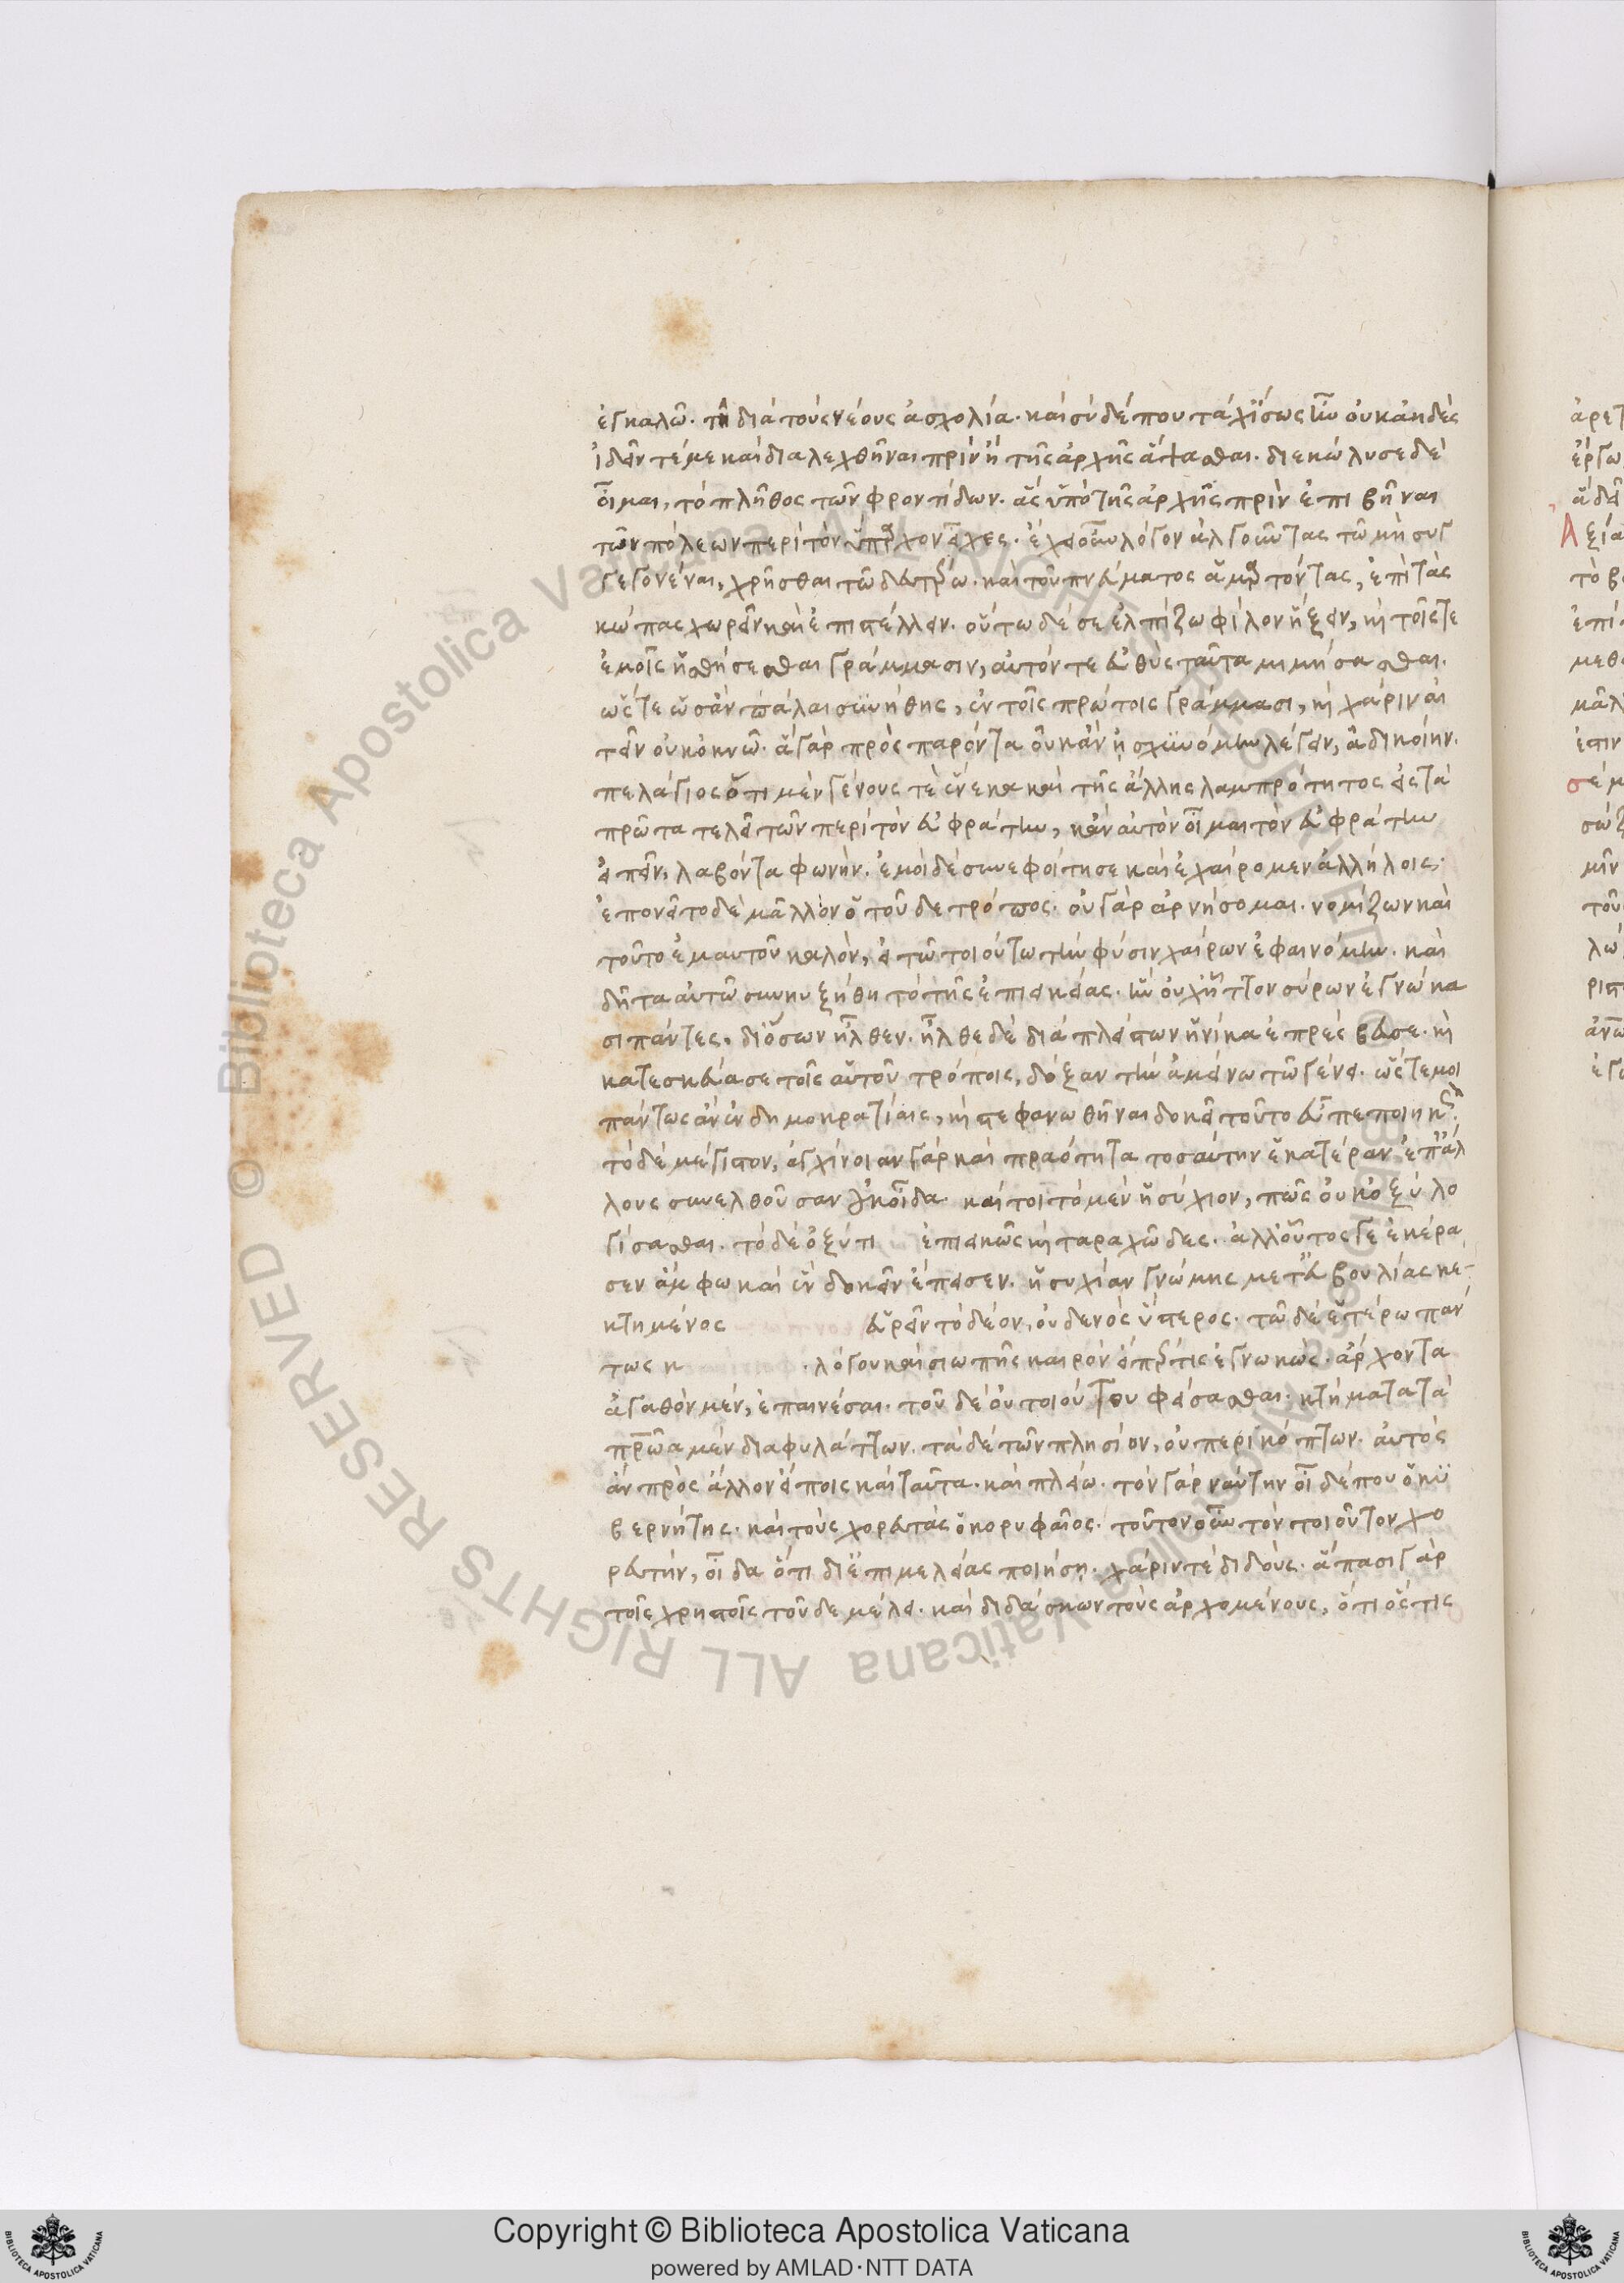 ἐγκαλῶ. τῆ διὰ τοὺς νέους ἀσχολία. καὶ σὺ δέ που τάχ' ἴσως ἦν οὐκ ἀηδὲς
ἰδεῖν τέ με καὶ διαλεχθῆναι πρὶν ἢ τῆς ἀρχῆς ἅψασθαι. διεκώλυσε δὲ
οἶμαι, τὸ πλῆθος τῶν φροντίδων. ἃς ὑπὸ τῆς ἀρχῆς πρὶν ἐπιβῆναι
τῶν πόλεων περὶ τὸν ὕπαρχον εἶχες. ἔχει οὖν λόγον ἀλγοῦντας τῶ μὴ συγ
γεγονέναι, χρῆσθαι τῶ δευτέρω. καὶ τοῦ πνεύματος ἁμαρτόντας, ἐπὶ τὰς
κώπας χωρεῖν καὶ ἐπιστέλλειν. οὕτω δέ σε ἐλπίζω φίλον ἥξειν, καὶ τοῖς τε
ἐμοῖς ἡσθήσεσθαι γράμμασιν, αὐτόν τε εὐθὺς ταῦτα μιμήσασθαι.
ὥστε ὡσὰν πάλαι συνήθης, ἐν τοῖς πρώτοις γράμμασι, καὶ χάριν αἰ
τεῖν οὐκ ὀκνῶ. ἃ γὰρ πρὸς παρόντα οὐκ ἂν ἠσχυνόμην λέγειν, ἀδικοίην.
πελάγιος ὅτι μὲν γένους τὲ ἕνεκα καὶ τῆς ἄλλης λαμπρότητος εἰς τὰ
πρῶτα τελεῖ τῶν περὶ τὸν εὐφράτην, κἂν αὐτὸν οἶμαι τὸν εὐφράτην
εἰπεῖν, λαβόντα φωνήν. ἐμοὶ δὲ συνεφοίτησε καὶ ἐχαίρομεν ἀλλήλοις.
ἐποιεῖτο δὲ μᾶλλον ὁ τοῦδε τρόπος. οὐ γὰρ ἀρνήσομαι. νομίζων καὶ
τοῦτο ἐμαυτοῦ καλόν, εἰ τῶ τοιούτω τὴν φύσιν χαίρων ἐφαινόμην. καὶ
δῆτα αὐτῶ συνηυξήθη τὸ τῆς ἐπιεικείας. ἣν οὐχ ἧττον σύρων ἐγνώκα
σι πάντες. δι' ὅσων ἦλθεν. ἦλθε δὲ διὰ πλείστων ἡνίκα ἐπρέσβευσε. καὶ
κατεσκεύασε τοῖς αὑτοῦ τρόποις, δόξαν τὴν ἀμείνω τῶ γένει. ὥστέ μοι
πάντως ἂν ἐν δημοκρατίαις, καὶ στεφανωθῆναι δοκεῖ τοῦτο εὖ πεποιηκώς.
τὸ δὲ μέγιστον, ἀγχίνοιαν γὰρ καὶ πραότητα τοσαύτην ἑκατέραν ἐπ' ἄλ
λους συνελθοῦσαν οὐκ οἶδα. καίτοι τὸ μὲν ἡσύχιον, πῶς οὐκ ὀξὺ λο
γίσασθαι. τὸ δὲ ὀξύ τι ἐπιεικῶς καὶ ταραχῶδες. ἀλλ' οὗτός γε ἐκέρα
σεν ἄμφω καὶ ἓν δοκεῖν ἔπεισεν. ἡσυχίαν γνώμης μετ' εὐβουλίας κε-
κτημένος εὑρεῖν τὸ δέον, οὐδενὸς ὕστερος. τῶ δὲ ἑτέρω πάν
τως κ λόγου καὶ σιωπῆς καιρὸν εἴπερ τις ἐγνωκώς. ἄρχοντα
ἀγαθὸν μέν, ἐπαινέσαι. τοῦ δὲ οὐ τοιούτου φείσασθαι. κτήματα τὰ
πατρῶα μὲν διαφυλάττων. τὰ δὲ τῶν πλησίον, οὐ περικόπτων. αὐτὸς
ἂν πρὸς ἄλλον εἴποις καὶ ταῦτα. καὶ πλείω. τὸν γὰρ ναύτην οἶδέ που ὁ κυ
βερνήτης. καὶ τοὺς χορευτὰς ὁ κορυφαῖος. τοῦτον οὖν τὸν τοιοῦτον χο
ρευτήν, οἶδα ὅτι δι' ἐπιμελείας ποιήση. χάριν τὲ διδούς. ἅπασι γὰρ
τοῖς χρηστοῖς τοῦδε μέλει. καὶ διδάσκων τοὺς ἀρχομένους, ὅτι ὅστις
Copyright © Biblioteca Apostolica Vaticana
powered by AMLAD·NTT DATA